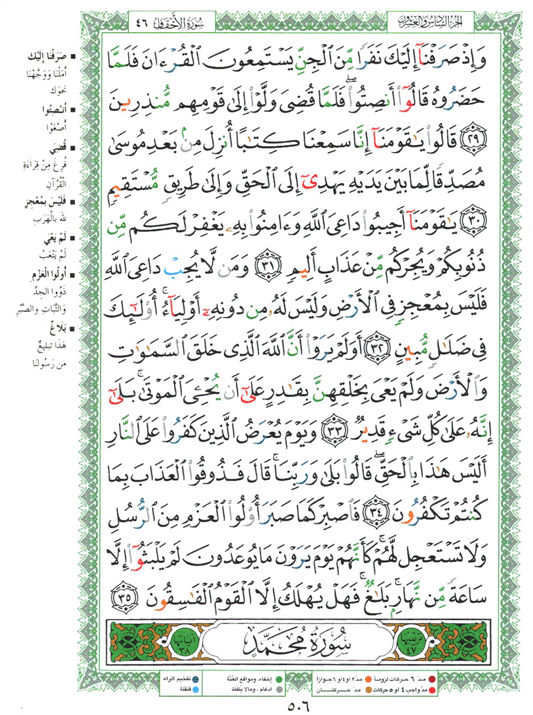 الجزء السادس والعشرون
سورة الأحقاف ٤٦
وَإِذْ صَرَفْنَآ إِلَيْكَ نَفَرًا مِّنَ ٱلْجِنِّ يَسْتَمِعُونَ ٱلْقُرْءَانَ فَلَمَّا
حَضَرُوهُ قَالُوٓا۟ أَنصِتُوا۟ ۖ فَلَمَّا قُضِىَ وَلَّوْا۟ إِلَىٰ قَوْمِهِم مُّنذِرِينَ
٢٩ قَالُوا۟ يَٰقَوْمَنَآ إِنَّا سَمِعْنَا كِتَٰبًا أُنزِلَ مِنۢ بَعْدِ مُوسَىٰ
مُصَدِّقًا لِّمَا بَيْنَ يَدَيْهِ يَهْدِىٓ إِلَى ٱلْحَقِّ وَإِلَىٰ طَرِيقٍ مُّسْتَقِيمٍ
٣٠ يَٰقَوْمَنَآ أَجِيبُوا۟ دَاعِىَ ٱللَّهِ وَءَامِنُوا۟ بِهِۦ يَغْفِرْ لَكُم مِّن
ذُنُوبِكُمْ وَيُجِرْكُم مِّنْ عَذَابٍ أَلِيمٍ ٣١ وَمَن لَّا يُجِبْ دَاعِىَ ٱللَّهِ
فَلَيْسَ بِمُعْجِزٍ فِى ٱلْأَرْضِ وَلَيْسَ لَهُۥ مِن دُونِهِۦٓ أَوْلِيَآءُ ۚ أُو۟لَٰٓئِكَ
فِى ضَلَٰلٍ مُّبِينٍ ٣٢ أَوَلَمْ يَرَوْا۟ أَنَّ ٱللَّهَ ٱلَّذِى خَلَقَ ٱلسَّمَٰوَٰتِ
وَٱلْأَرْضَ وَلَمْ يَعْىَ بِخَلْقِهِنَّ بِقَٰدِرٍ عَلَىٰٓ أَن يُحْـِۧىَ ٱلْمَوْتَىٰ ۚ بَلَىٰٓ
إِنَّهُۥ عَلَىٰ كُلِّ شَىْءٍ قَدِيرٌ ٣٣ وَيَوْمَ يُعْرَضُ ٱلَّذِينَ كَفَرُوا۟ عَلَى ٱلنَّارِ
أَلَيْسَ هَٰذَا بِٱلْحَقِّ ۖ قَالُوا۟ بَلَىٰ وَرَبِّنَا ۚ قَالَ فَذُوقُوا۟ ٱلْعَذَابَ بِمَا
كُنتُمْ تَكْفُرُونَ ٣٤ فَٱصْبِرْ كَمَا صَبَرَ أُو۟لُوا۟ ٱلْعَزْمِ مِنَ ٱلرُّسُلِ
وَلَا تَسْتَعْجِل لَّهُمْ ۚ كَأَنَّهُمْ يَوْمَ يَرَوْنَ مَا يُوعَدُونَ لَمْ يَلْبَثُوٓا۟ إِلَّا
سَاعَةً مِّن نَّهَارٍۭ ۚ بَلَٰغٌ ۚ فَهَلْ يُهْلَكُ إِلَّا ٱلْقَوْمُ ٱلْفَٰسِقُونَ ٣٥
سُورَةُ مُحَمَّدٍ
■ صَرَفْنَا إِلَيْكَ
أَمَلْنَا وَوَجَّهْنَا
نَحْوَكَ
■ أَنصِتُوا
أَصْغُوا
■ قُضِيَ
فُرِغَ مِنْ قِرَاءَةِ
القُرْآنِ
■ فَلَيْسَ بِمُعْجِزٍ
لله بالهَرَبِ
■ لَمْ يَعْيَ
لَمْ يَتْعَبْ
■ أُولُوا العَزْمِ
ذَوُو الجِدِّ
وَالثَّبَاتِ والصَّبْرِ
■ بَلَاغٌ
هَذَا تَبْلِيغٌ
مِن رَسُولِنَا
مدّ ٦ حركات لزوماً ● مدّ ٢ أو ٤ أو ٦ جوازاً ● إخفاء، ومواقع الغُنَّة ● تفخيم الراء
مدّ واجب ٤ أو ٥ حركات ● مدّ حركتان ● ادغام، وما لا يُلفَظ ● قلقلة
٥٠٦